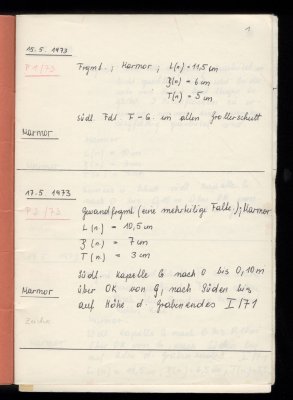 1
15.5.1973
P 1/73
Frgmt.; Marmor; L(n.) = 11,5 cm
B(n.) = 6 cm
T(n.) = 5 cm
Südl. Fdl. F-G im alten Grollerschutt
Marmor
17.5.1973
P 2/73
Gewandfrgmt (eine mehrteilige Falte); Marmor
L(n.) = 10,5 cm
B(n.) = 7 cm
T(n.) = 3 cm
Südl. Kapelle G nach O bis 0,10 m
über OK von G, nach Süden bis
auf Höhe d. Grabenendes I/71
Marmor